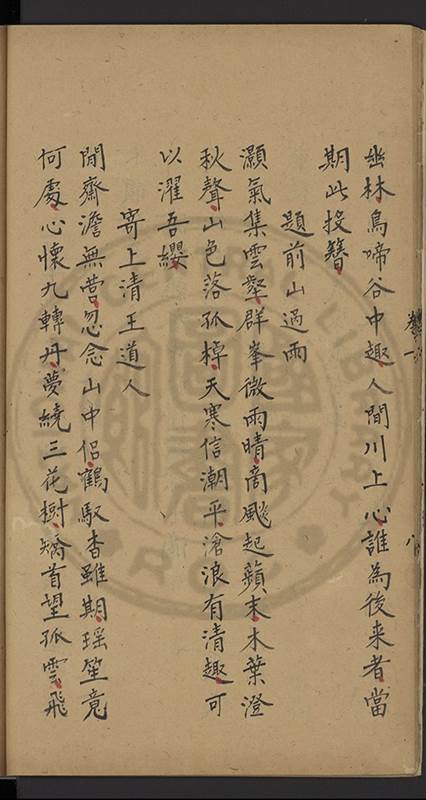 幽林鳥啼谷中趣人間川上心誰為後来者當
期此投簪
題前山過雨
灝氣集雲壑群峯微雨晴商飈起蘋末木葉澄
秋聲山色落孤棹天寒信潮平滄浪有清趣可
以濯吾纓
寄上清王道人
閒齋澹無營忽念山中侶鶴馭杳難期瑶笙竟
何處心懷九轉丹夢繞三花樹矯首望孤雲飛
卷一
八